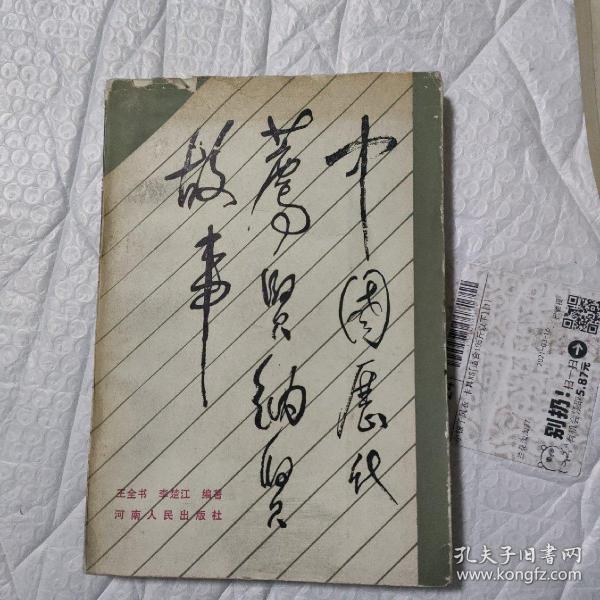 中國歷代
薦賢納賢
故事
王全书 李楚江 编著
河南人民出版社
别扔!
扫一扫
5.87元
孔夫子旧书网
www.kongfz.com